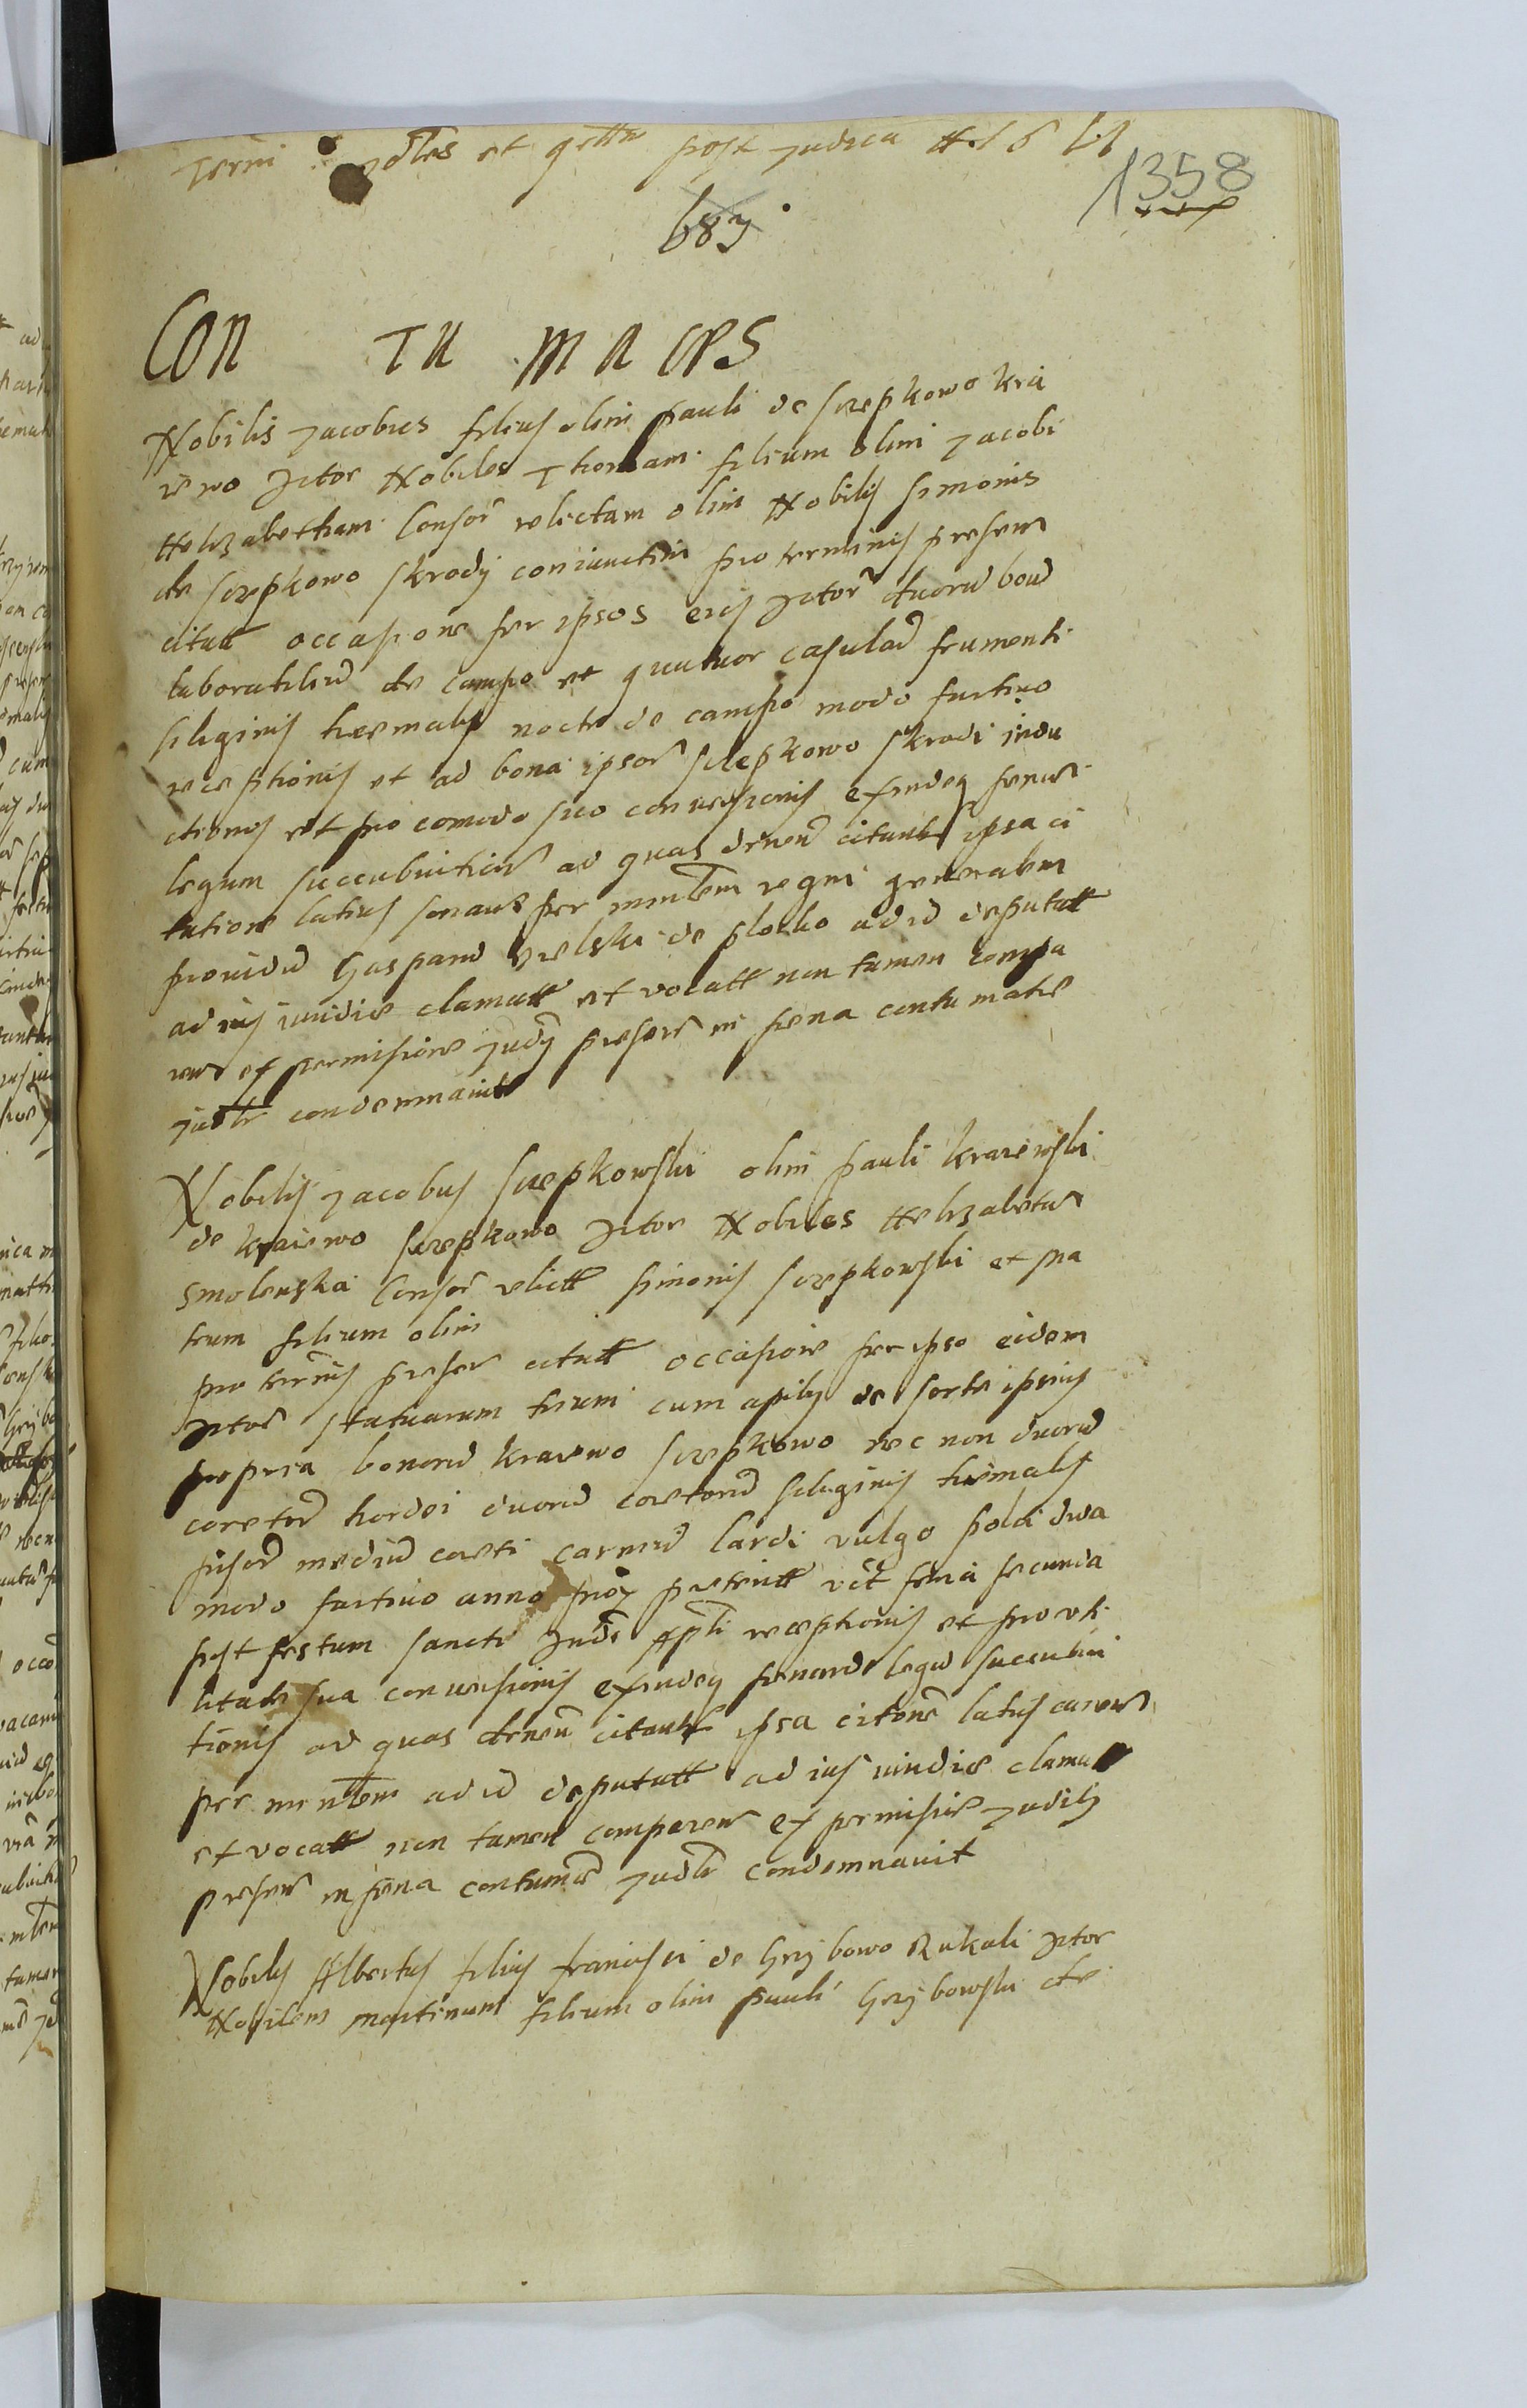 Termi ndles et qttu post Judica
1358
687
CON TU MA CES
Nobilis Jacobus filius olim pauli de scepkowo kra
iewo Actor Nobiles Thomam filium olim Jacobi
Helizabetham Consor relictam olim Nobilis simonis
de scepkowo skrody coniunctim pro terminis presens
citatt occasione per ipsos eius Actor duoru bou
laboratiliu de campo et quatuor casulau frumenti
siliginis hiemalis nocte de campo modo furtivo
receptionis et ad bona ipsor scepkowo skrodi indu
ctionis et pro comodo suo conversionis exindeq penar
legum succubuitionis ad quas deuen citant ipsa ci
tatione latius sonans per minlem regni generalem
providu Gaspard de plocko ad id deputatt
ad ius iuridice clamatt et vocatt non tamen compa
ren ex permisione Judy presens in pena contumatie
Judtr condemnavit
Nobilis Jacobus scepkowski olim pauli kraiewski
de kraiewo scepkowo Actor Nobiles Helizabetam
smolenska Consor relictt simonis scepkowski et ma
teum filium olim
pro terminis presen citatt occasione per ipso eidem
Actor statuarum trium cum apibus de sorte ipsius
propria bonoru kraiewo scepkowo nec non duoru
coretor hordei duoru coretoru siliginis hiemalis
pisor mediu coreti carniu lardi vulgo polci dwa
modo furtivo anno proxi preteritt vit feria secunda
post festum sancti Jude Apli receptionis et pro uti
litate sua conversionis exindeq penaru legu succubui
tionis ad quas deuen citant ipsa citone latius canens
per minlem ad id deputatt ad ius iuridice clamatt
et vocatt non tamen comparen ex permisione Judity
presens in pena contumac Judtr condemnavit
Nobilis Albertus filius francisci de Grzybowo Rukali Actor
Nobilem martinum filium olim pauli Grzybowski de